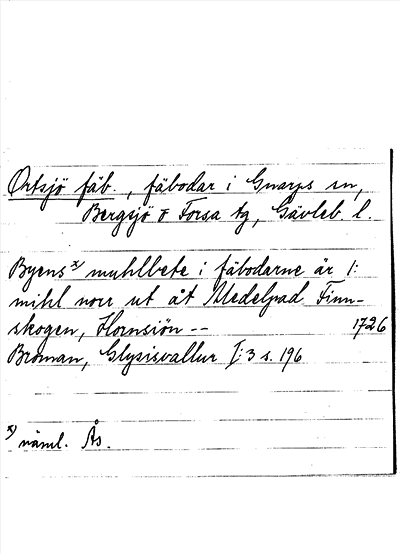 Ortsjö fäb., fäbodar i Gnarps sn,
Bergsjö o Forsa tg, Gävleb. l.
Byens x) muhlbete i fäbodarne är 1:
mihl norr ut åt Medelpad Finn-
skogen, Hornsiön --
1726
Broman, Glysisvallur I:3 s. 196
x) näml. Ås.